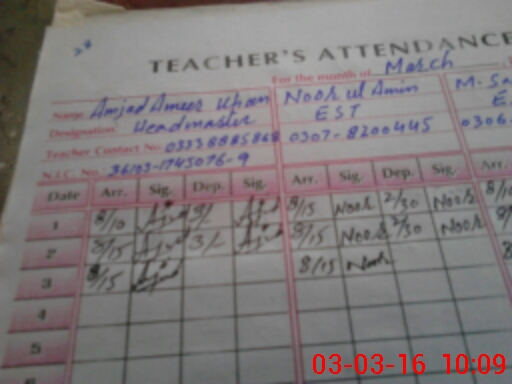 28
TEACHER'S ATTENDANCE
For the month of March
Name Amjad Ameer Khan Noor ul Amin M. Sa
Designation Headmaster EST E.
Teacher Contact No. 03338885868 0307-8200445 0306-
N.I.C. No. 36103-1745076-9
Date Arr. Sig. Dep. Sig. Arr. Sig. Dep. Sig. Arr.
1 8/10 3/ 8/15 Noor 2/30 Noor 8/10
2 8/15 3/ 8/15 Noor 2/30 Noor
3 8/15 8/15 Noor
4
5
03-03-16 10:09